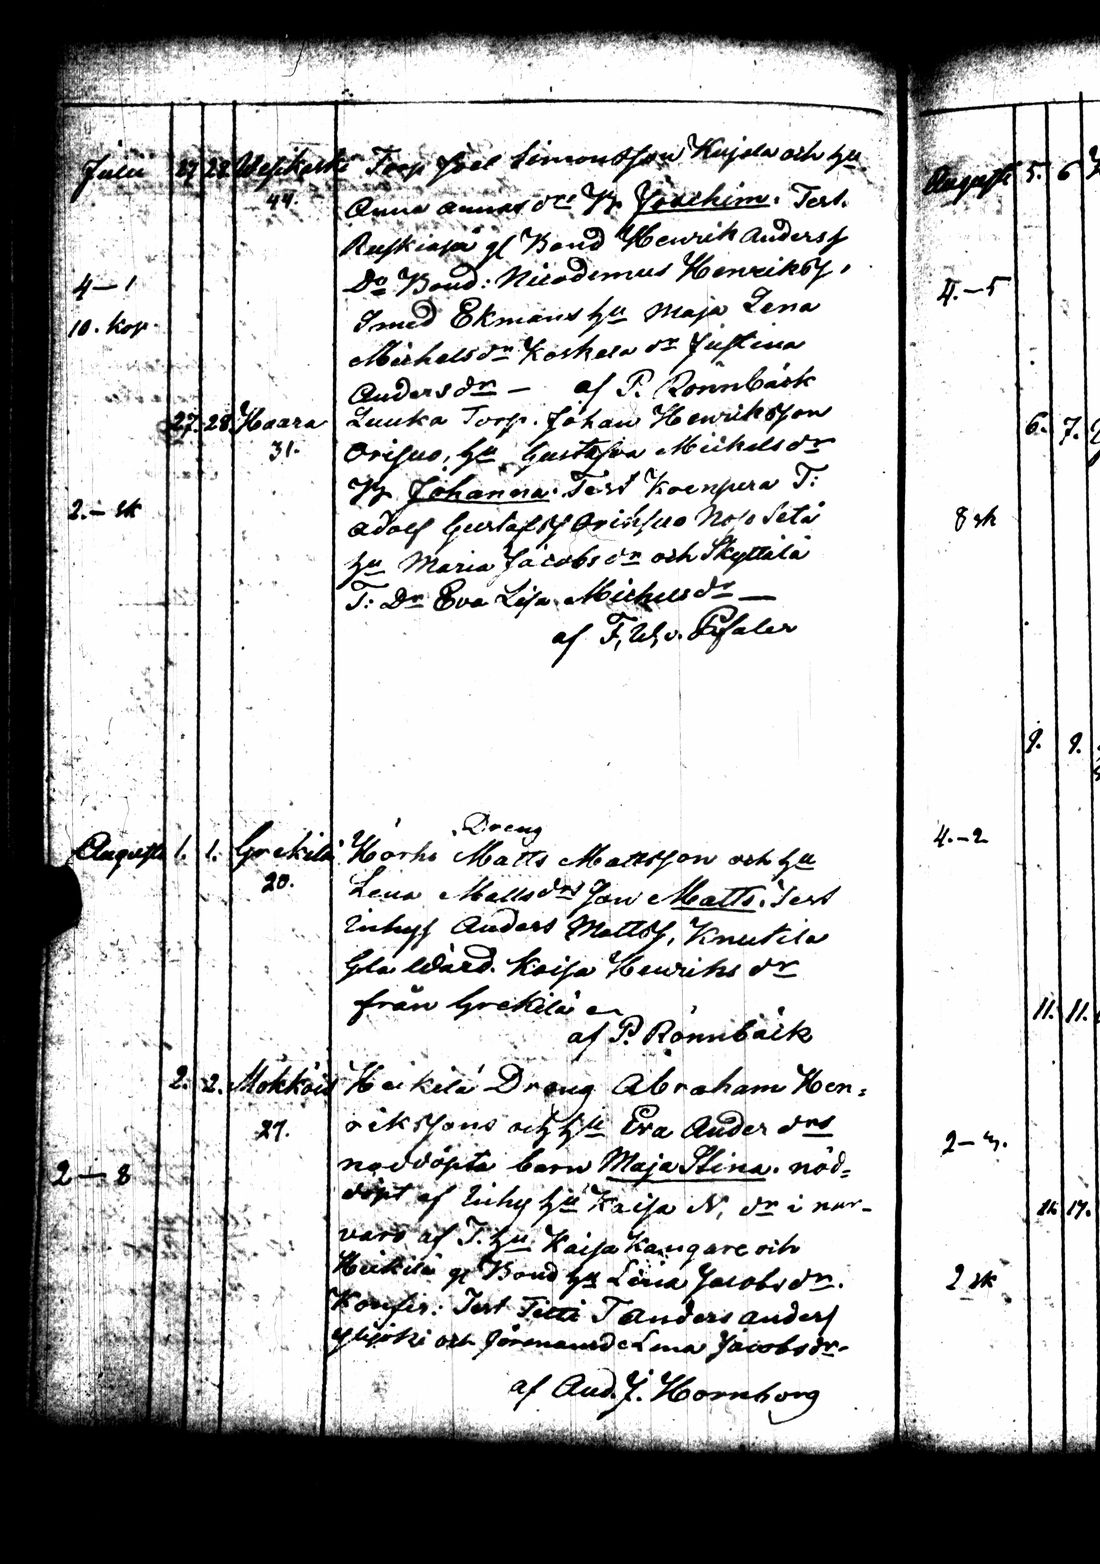 Julii 27 28 Wesikoski Torp Joel Simonsson Kujala och hu
44. Anna Annas drs B. Joachim. Test.
Ruskiapä gl Bond Henrik Anderss
4–1 Do Bond: Nicodemus Henrikss,
10. kop. Smed Ekmans hu Maja Lena
Michelsdr Koskela dr Justina
Andersdr — af P. Rönnbäck
27. 28. Haara Luuka Torp. Johan Henriksson
31. Orisuo, hu Gustafva Michelsdr
B. Johanna. Test Koenpera T:
2.– sk Adolf Gustafss Orisuo
hu Maria Jacobsdr och Skyttälä
T: Dr Eva Lisa Michelsdr —
af F. W. v. Pfaler
Dreng
Augusti 1. 1. Grekilä Korho Matts Mattsson och hu
20. Lena Mattsdrs Son Matts. Test
Inhys Anders Mattss, Knutila
Gla Wärd. Kaisa Henriksdr
från Grekilä
af P. Rönnbäck
2. 2. Mökköis Heikilä Dreng Abraham Hen=
27. rikssons och hu Eva Anderdrs
2–8 nöddöpta barn Maja Stina. nöd=
döpt af Inhy hu Kaisa N. dr i när-
varo af T. hu Kaisa Kangare och
Heikilä gl Bond hu Lena Jacobsdr.
Konfir: Test Titti T Anders Anders
Ylijoki och förenämnde Lena Jacobsdr.
af And. J. Hornborg
Augusti 5. 6
4.–5
6. 7.
8 sk
9. 9.
4.–2
11. 11.
2–3.
16. 17.
2 sk